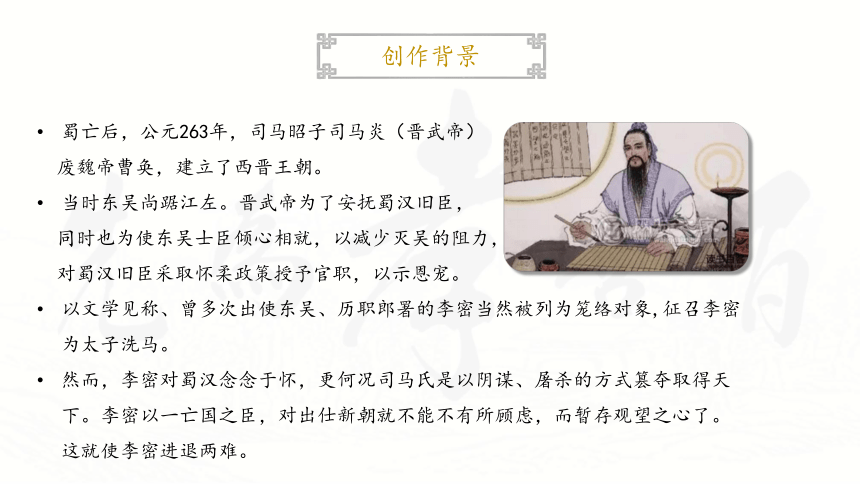 创作背景
• 蜀亡后，公元263年，司马昭子司马炎（晋武帝）
废魏帝曹奂，建立了西晋王朝。
• 当时东吴尚踞江左。晋武帝为了安抚蜀汉旧臣，
同时也为使东吴士臣倾心相就，以减少灭吴的阻力，
对蜀汉旧臣采取怀柔政策授予官职，以示恩宠。
• 以文学见称、曾多次出使东吴、历职郎署的李密当然被列为笼络对象,征召李密
为太子洗马。
• 然而，李密对蜀汉念念于怀，更何况司马氏是以阴谋、屠杀的方式篡夺取得天
下。李密以一亡国之臣，对出仕新朝就不能不有所顾虑，而暂存观望之心了。
这就使李密进退两难。